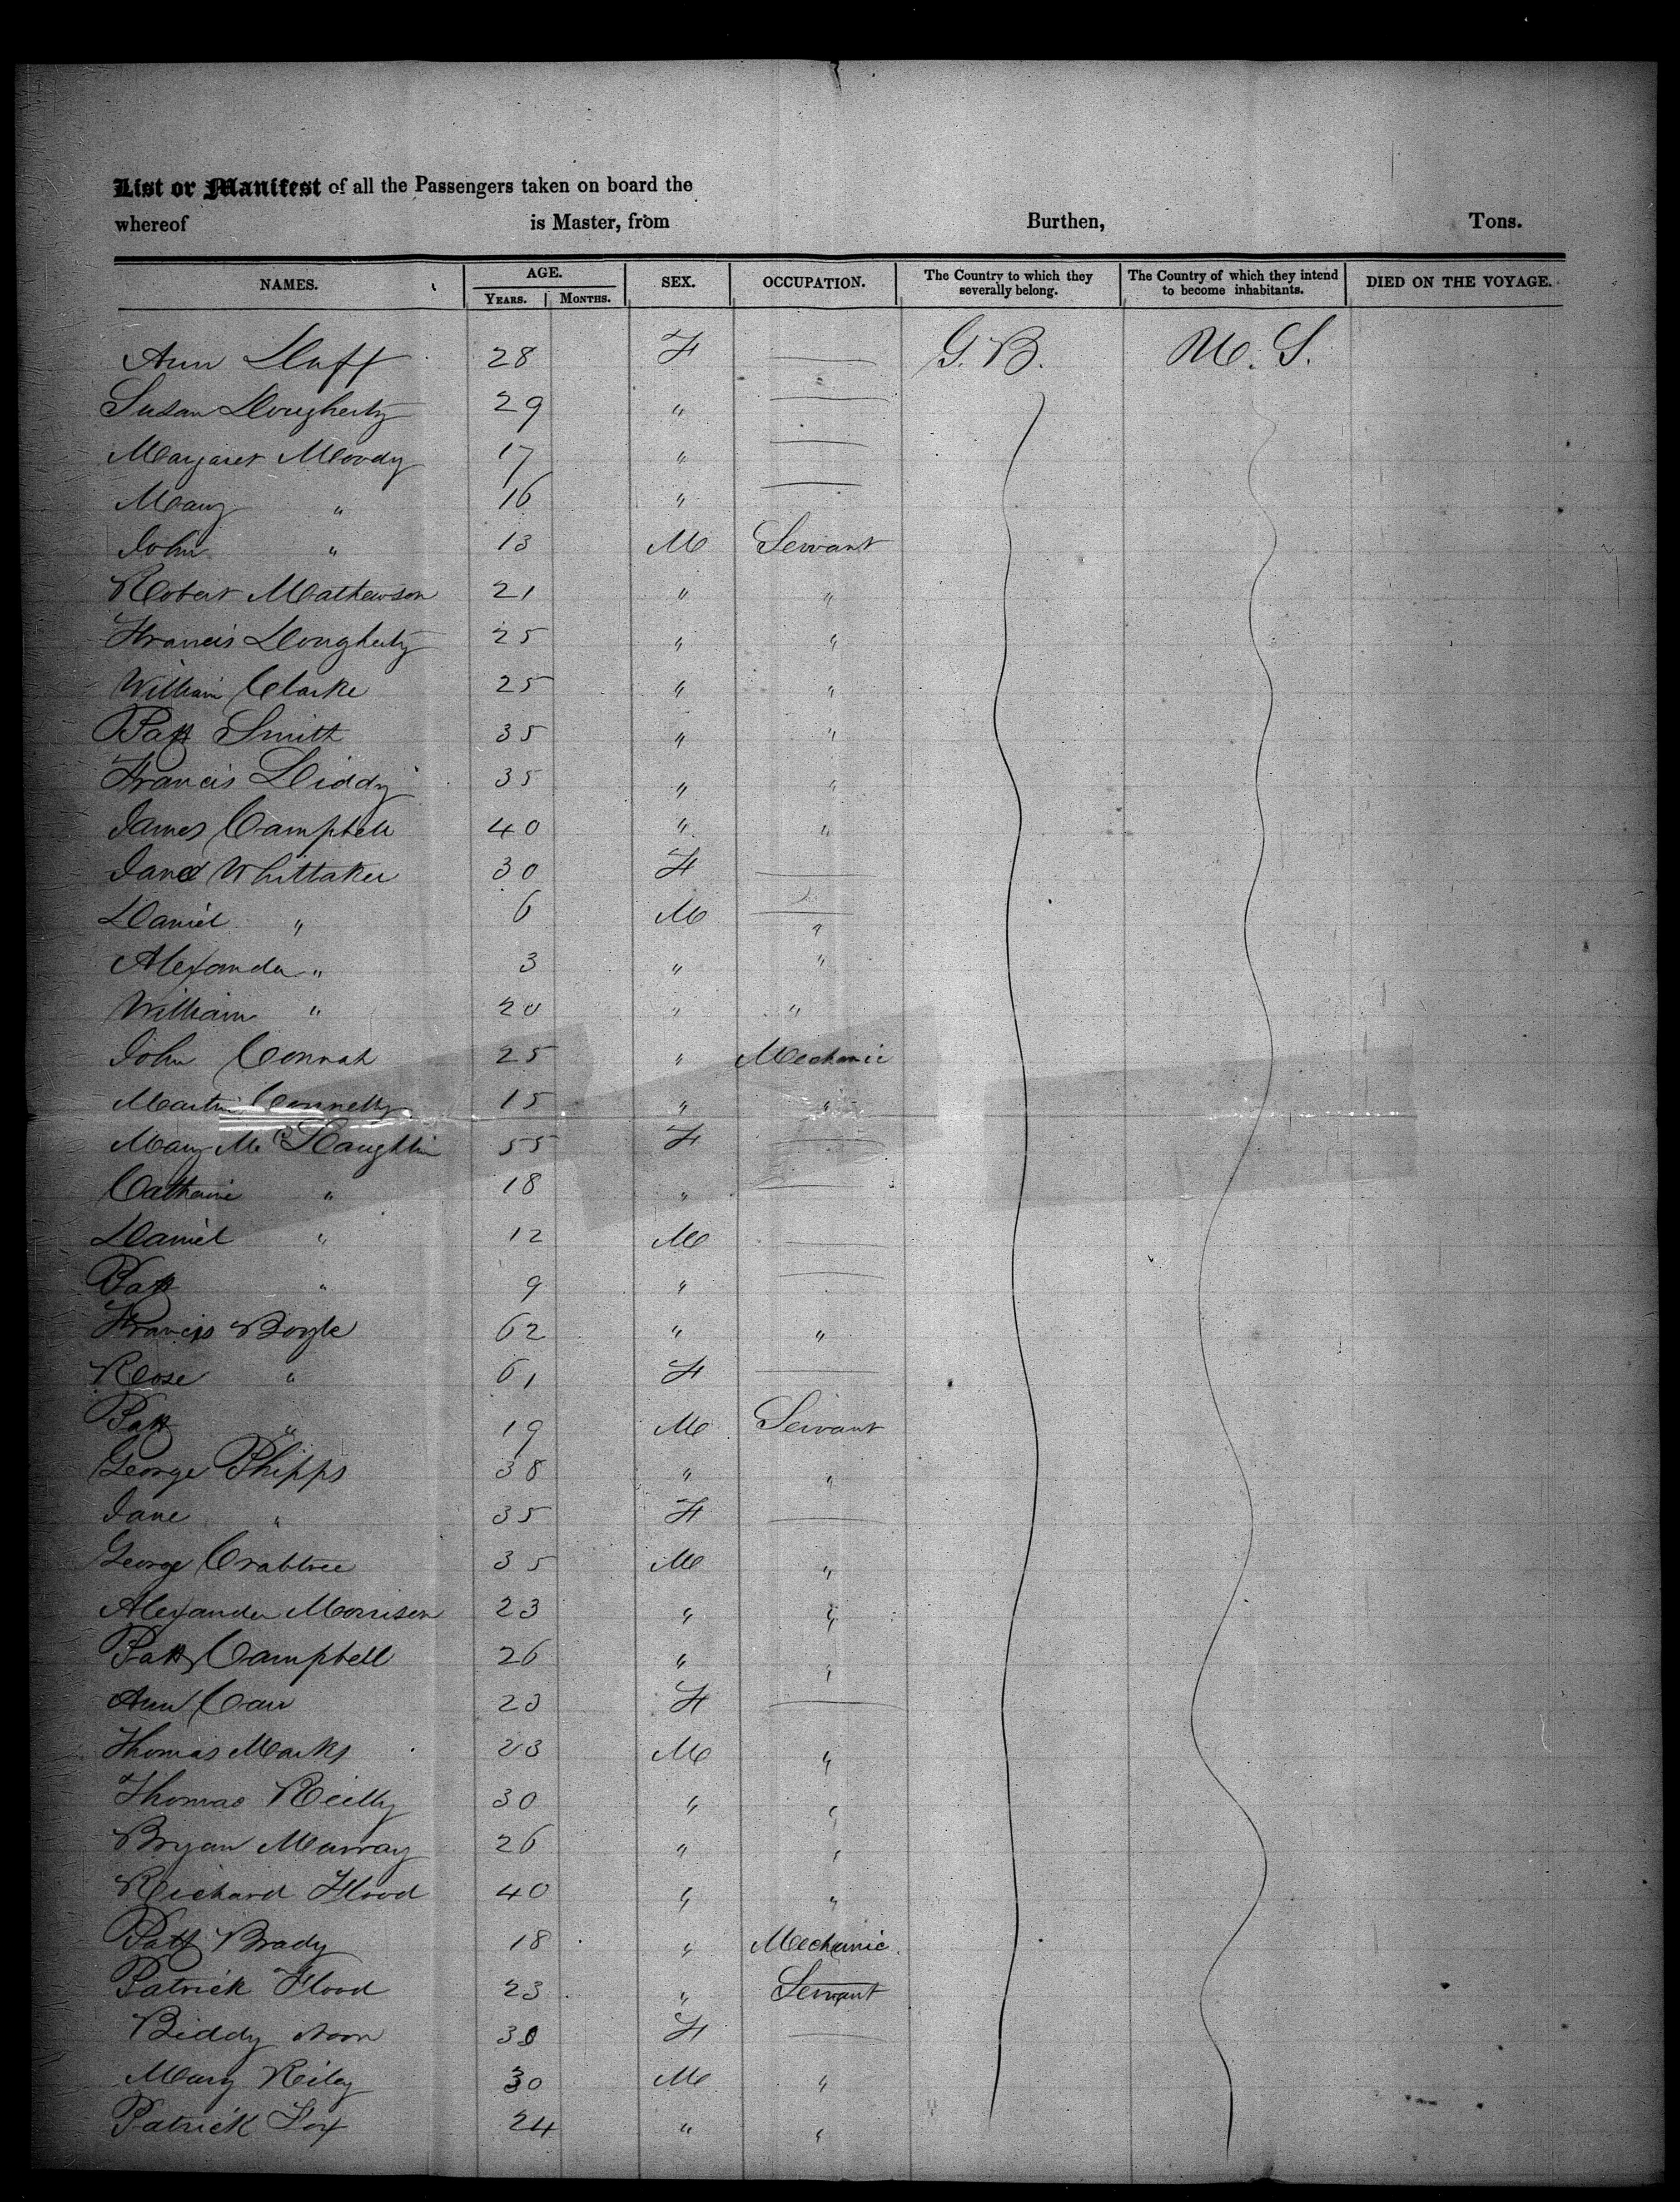 List or Manifest of all the Passengers taken on board the
whereof is Master, from Burthen, Tons.
NAMES. AGE. SEX. OCCUPATION. The Country to which they severally belong. The Country of which they intend to become inhabitants. DIED ON THE VOYAGE.
YEARS. MONTHS.
Ann Duff 28 F — G. B. U. S.
Susan Dougherty 29 " —
Margaret Moody 17 " —
Mary " 16 " —
John " 13 M Servant
Robert Mathewson 21 " "
Francis Dougherty 25 " "
William Clarke 25 " "
Patk Smith 35 " "
Francis Diddy 35 " "
James Campbell 40 " "
Jane Whittaker 30 F —
Daniel " 6 M — "
Alexander " 3 " "
William " 20 " "
John Connah 25 " Mechanic
Martin Connelly 15 " "
Mary Mc Laughlin 55 F —
Catharine " 18 " —
Daniel " 12 M —
Patk " 9 " —
Francis Boyle 62 " "
Rose " 61 F —
Patk " 19 M Servant
George Phipps 38 " "
Jane " 35 F —
George Crabtree 35 M "
Alexander Morrison 23 " "
Patk Campbell 26 " "
Ann Carr 23 F —
Thomas Marks 23 M "
Thomas Reilly 30 " "
Bryan Murray 26 " "
Richard Flood 40 " "
Patk Brady 18 " Mechanic
Patrick Flood 23 " Servant
Biddy Noon 30 F —
Mary Riley 30 M "
Patrick Fox 24 " "